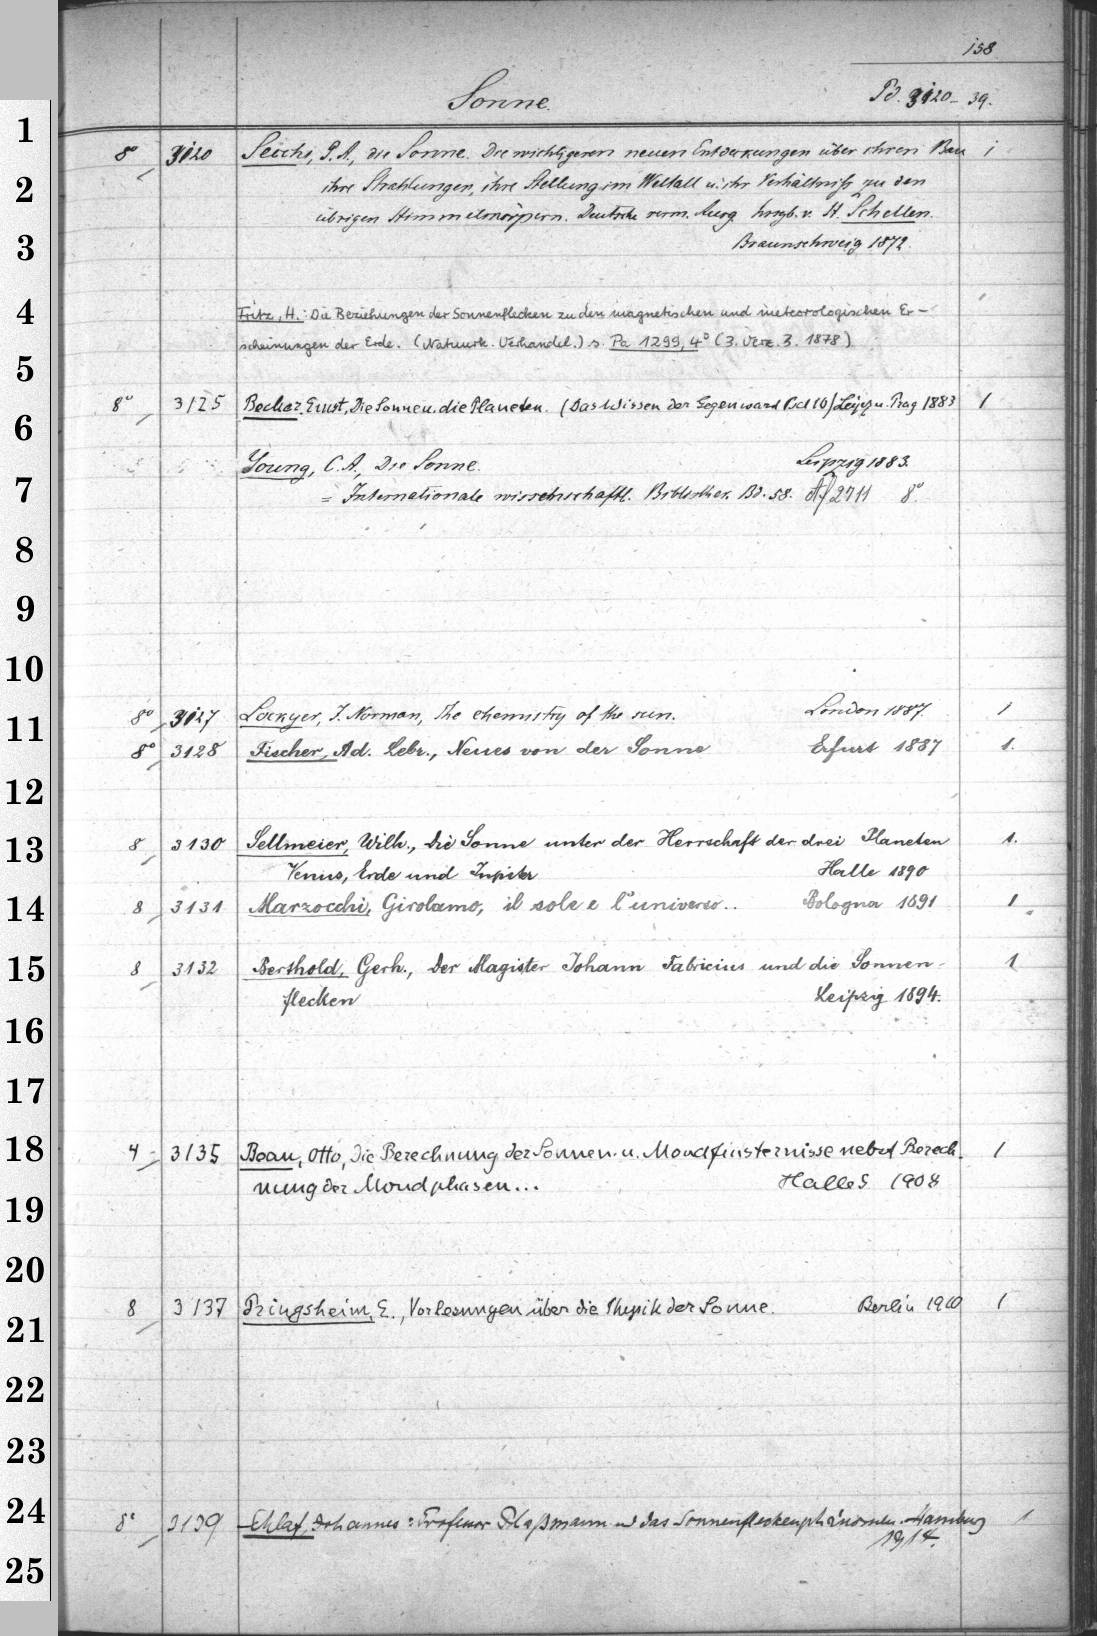 158
Sonne.
Pd. 3120-39.
1
8° 3120 Secchi, P. A., die Sonne. Die wichtigeren neuen Entdeckungen über ihren Bau 1
2
ihre Strahlungen, ihre Stellung im Weltall u. ihr Verhältniß zu den
übrigen Himmelskörpern. Deutsche verm. Ausg. hrsgb. v. H. Schellen.
3
Braunschweig 1872.
4
Fritz, H.: Die Beziehungen der Sonnenflecken zu den magnetischen und meteorologischen Er-
scheinungen der Erde. (Natuurk. Verhandel.) s. Pa 1299, 4° (3. Verz. 3. 1878)
5
8° 3125 Becker, Ernst, Die Sonne u. die Planeten. (Das Wissen der Gegenwart Bd 10) Leipz u. Prag 1883 1
6
Young, C. A., Die Sonne. Leipzig 1883.
7
= Internationale wissenschaftl. Bibliothek. Bd. 58. Af 2711 8°.
8
9
10
8° 3127 Lockyer, J. Norman, The chemistry of the sun. London 1887. 1
11
8° 3128 Fischer, Ad. Lebr., Neues von der Sonne Erfurt 1887 1.
12
8 3130 Sellmeier, Wilh., die Sonne unter der Herrschaft der drei Planeten 1.
13
Venus, Erde und Jupiter Halle 1890
14
8 3131 Marzocchi, Girolamo, il sole e l'universo.. Bologna 1891 1
15
8 3132 Berthold, Gerh., Der Magister Johann Fabricius und die Sonnen- 1
flecken Leipzig 1894.
16
17
18
4 3135 Bean, Otto, Die Berechnung der Sonnen- u. Mondfinsternisse nebst Berech- 1
nung der Mondphasen... Halle S. 1908
19
20
8 3137 Pringsheim, E., Vorlesungen über die Physik der Sonne. Berlin 1910 1
21
22
23
24
8° 3139 Schlaf, Johannes: Professor Plaßmann u das Sonnenfleckenphänomen. Hamburg 1
1914.
25